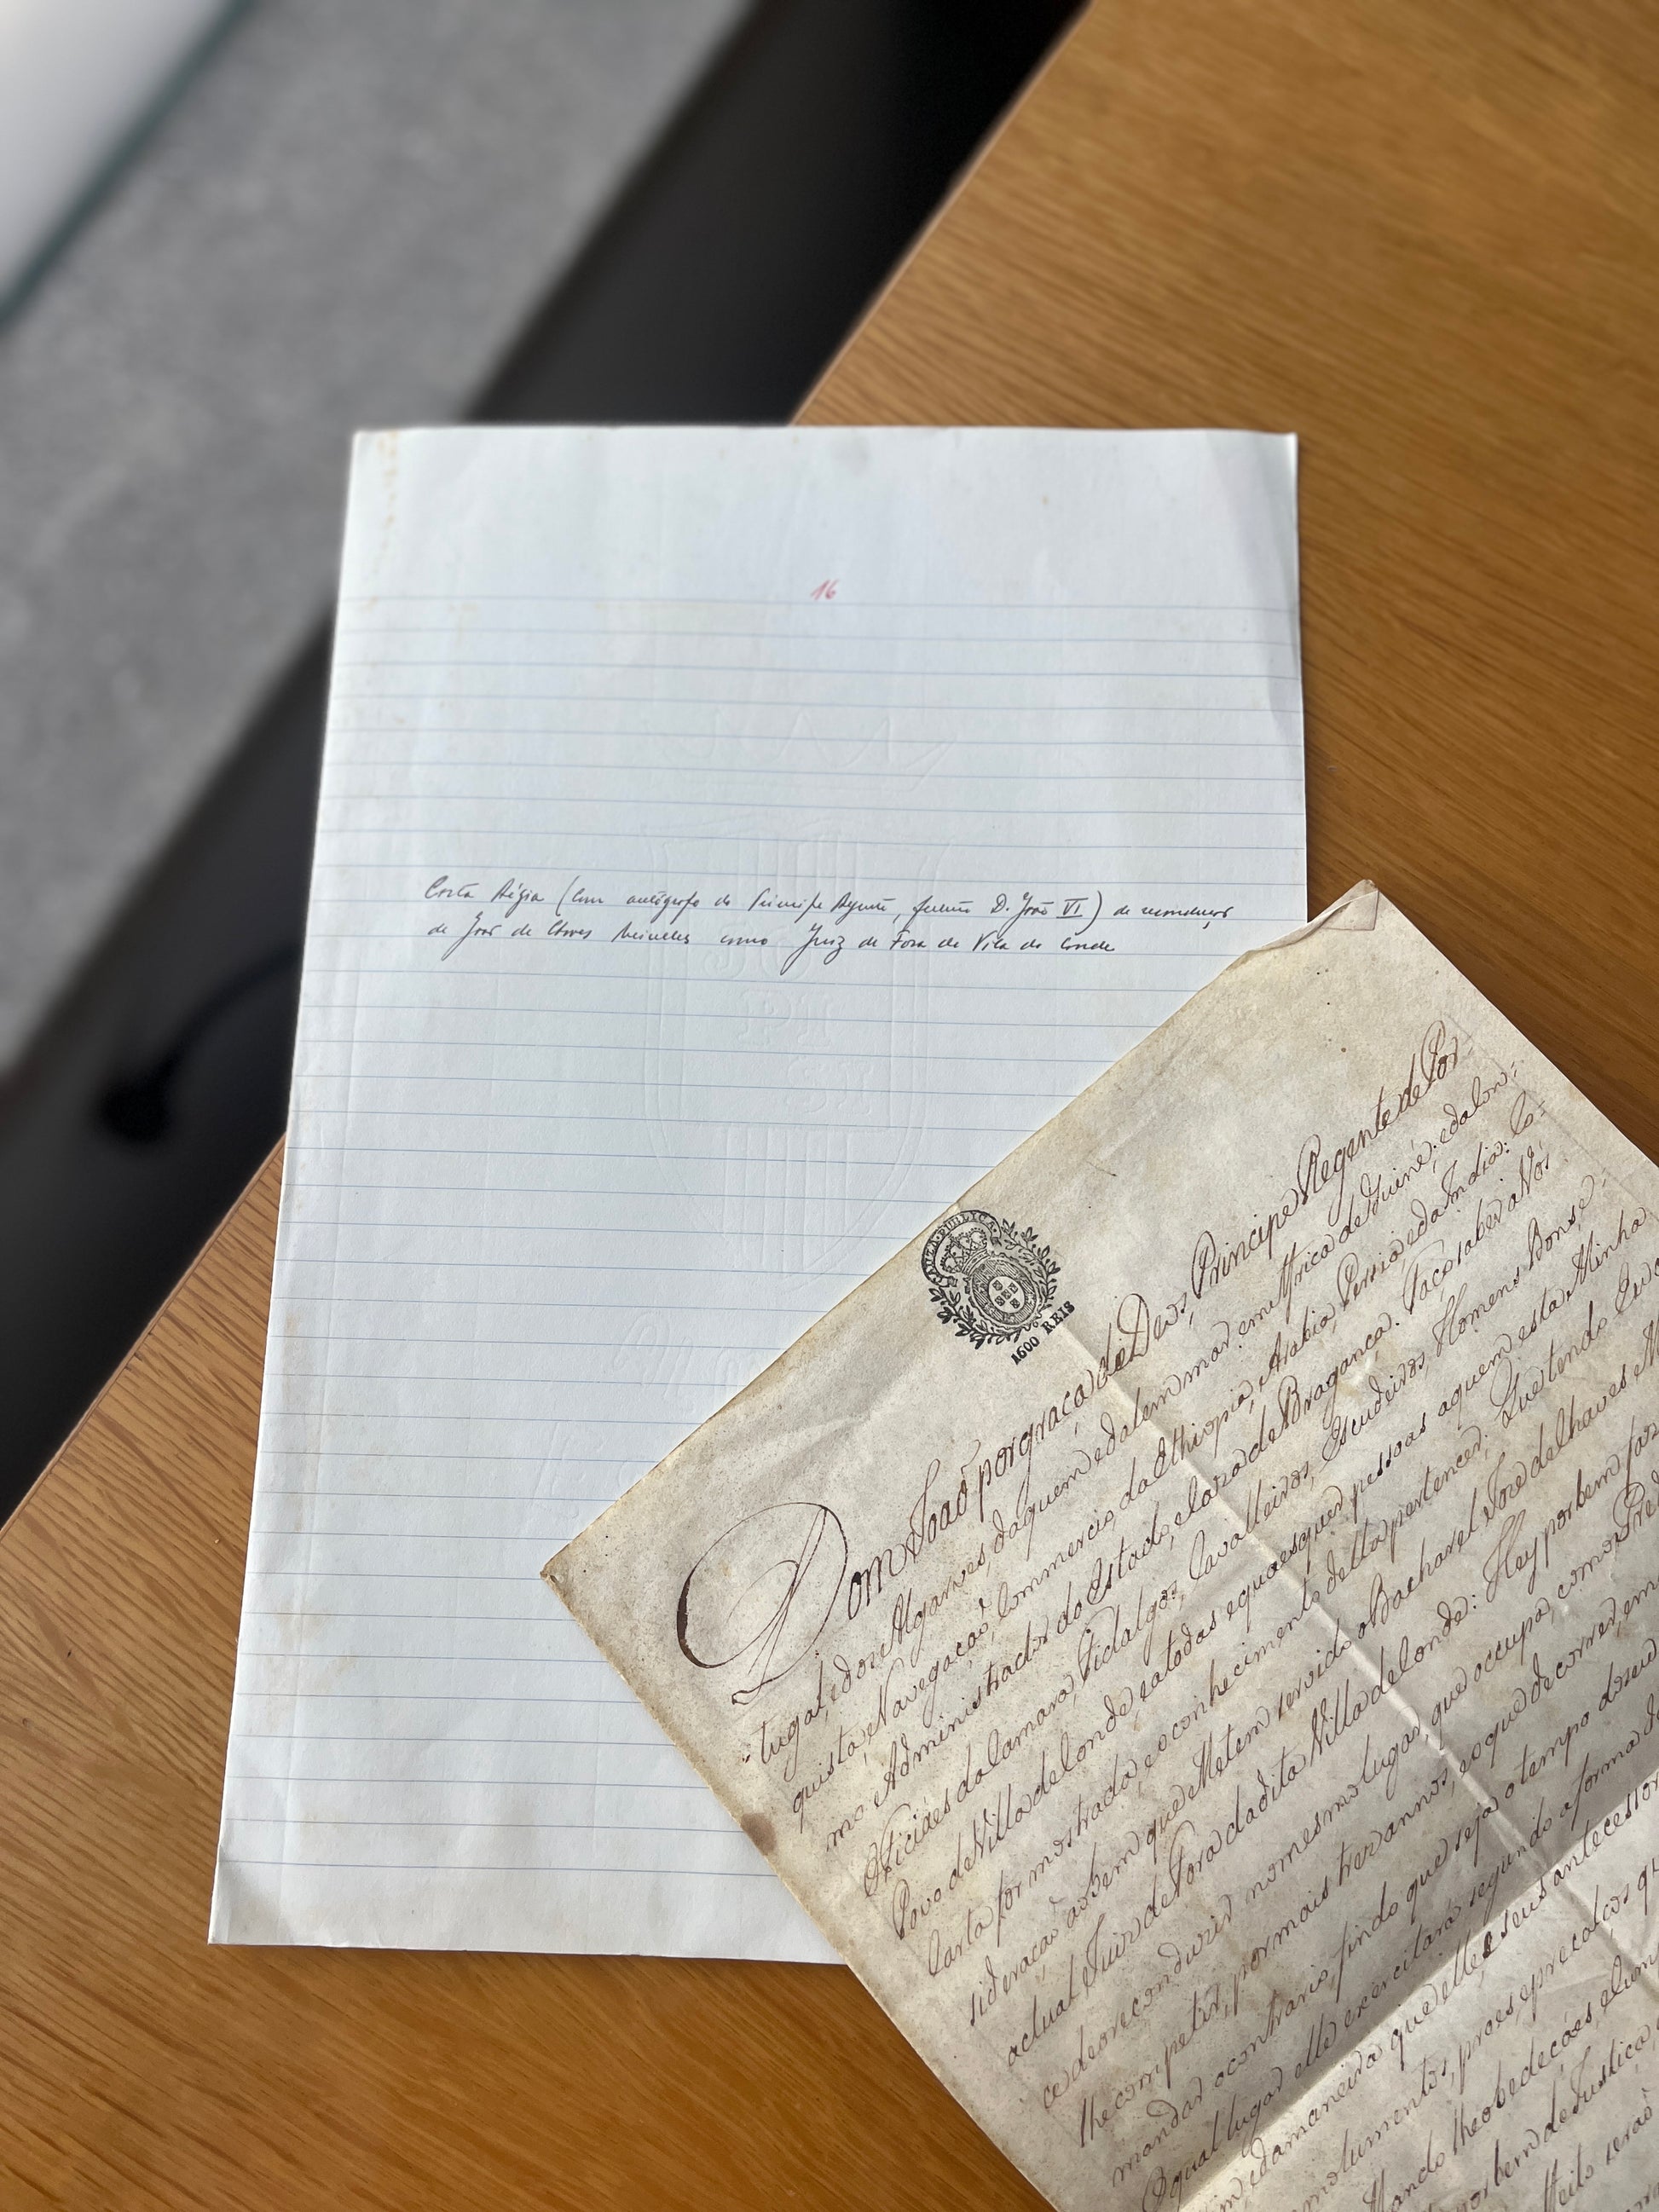 16
Carta Régia (com autógrafo do Principe Regente, futuro D. João VI) de recondução
de José de Chaves Meireles como Juiz de Fora de Vila do Conde
CAUZA PUBLICA
1600 REIS
Dom Joaõ por graça de Deos, Principe Regente de Por
tugal, e dos Algarves, daquem e dalem mar, em Africa de Guiné; e da Con:
quista, Navegaçaõ, Commercio, da Ethiopia, Arabia, Persia, e da India: Co:
mo Administrador do Estado, e Caza de Bragança. Faço saber a Vós
Officiáes da Camara, Fidalgos, Cavalleiros, Escudeiros, Homens Bons, e
Povo de Villa do Conde, e a todas e quaesquer pessoas a quem esta Minha
Carta for mostrada, e o conhecimento della pertencer; Que tendo
sideraçaõ ao bem que Me tem servido o Bacharel Jozé de Chaves
actual Juiz de Fora da dita Villa do Conde: Hey por bem faz
ce de o reconduzir no mesmo lugar, que occupa, com o
lhe competir, por mais tres annos, e o que decorrer, em
mandar o contrario, findo que seja o tempo do seu
O qual lugar elle exercitará segundo a forma
e da maneira que elle e seus antecessor
molumentos, proes, e precalços
Mando lhe obedeçáes,
por bem de Justiça,
seraõ